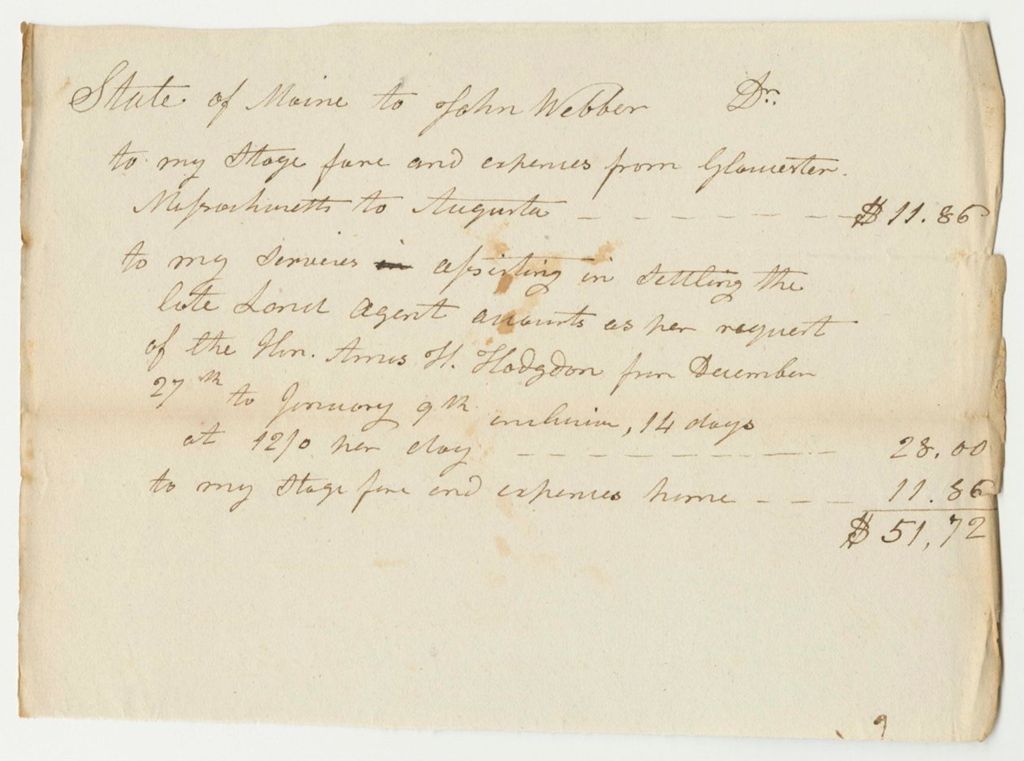 State of Maine to John Webber Dr.
to my Stage fare and expenses from Gloucester
Massachusetts to Augusta $ 11.86
to my services in assisting in settling the
late Land Agent accounts as per request
of the Hon. Amos H. Hodgdon from December
27th to January 9th inclusive, 14 days
at 12/0 per day 28.00
to my Stage fare and expenses home 11.86
$ 51,72
9